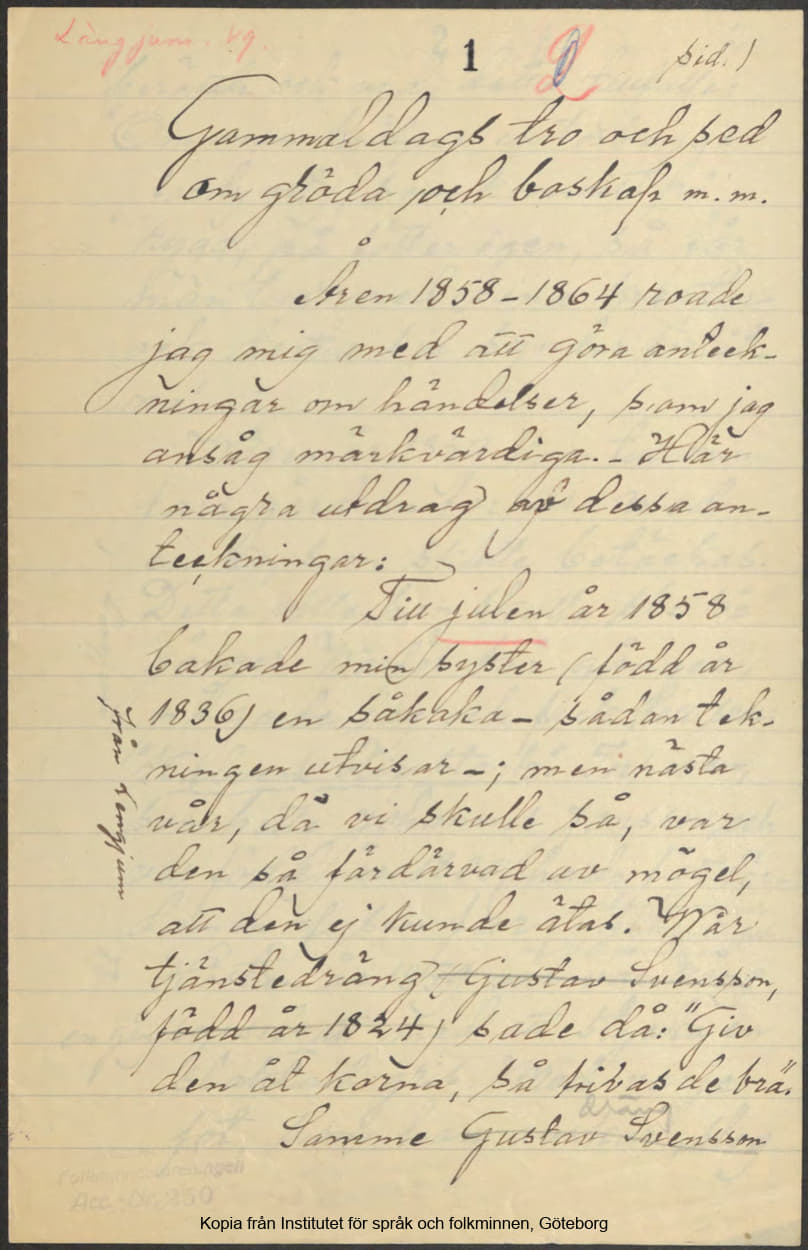 Långjum. Vg.
1
sid. 1
Gammaldags tro och sed
om gröda och boskap m.m.
Åren 1858–1864 roade
jag mig med att göra anteck-
ningar om händelser, som jag
ansåg märkvärdiga. – Här
några utdrag av dessa an-
teckningar:
Till julen år 1858
bakade min syster (född år
1836) en såkaka – sådan tek-
ningen utvisar –; men nästa
vår, då vi skulle så, var
den så färdärvad av mögel,
att den ej kunde ätas. Vår
tjänstedräng (Gustav Svensson,
född år 1824) sade då: "Giv
den åt korna, så trivas de brä".
dräng
Samme Gustav Svensson
från Lengjum
Folkminnesföreningen
Acc.-Nr. 250
Kopia från Institutet för språk och folkminnen, Göteborg